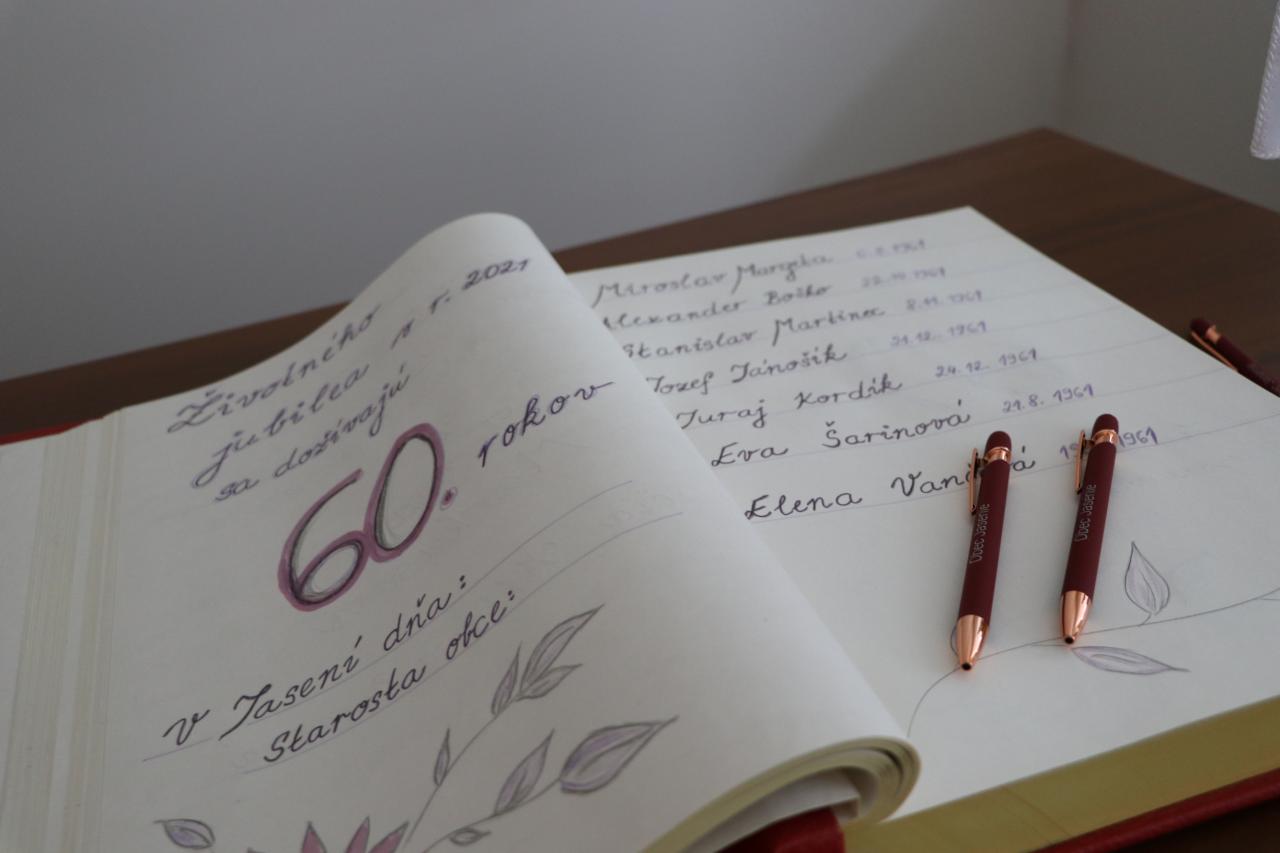 Životného
jubilea v r. 2021
sa dožívajú
60. rokov
v Jasení dňa:
Starosta obce:
Miroslav Margeta 6.8.1961
Alexander Boško 22.10.1961
Stanislav Martinec 8.11.1961
Jozef Jánošík 21.12.1961
Juraj Kordík 24.12.1961
Eva Šarinová 21.8.1961
Elena
Obec Jasenie
Obec Jasenie